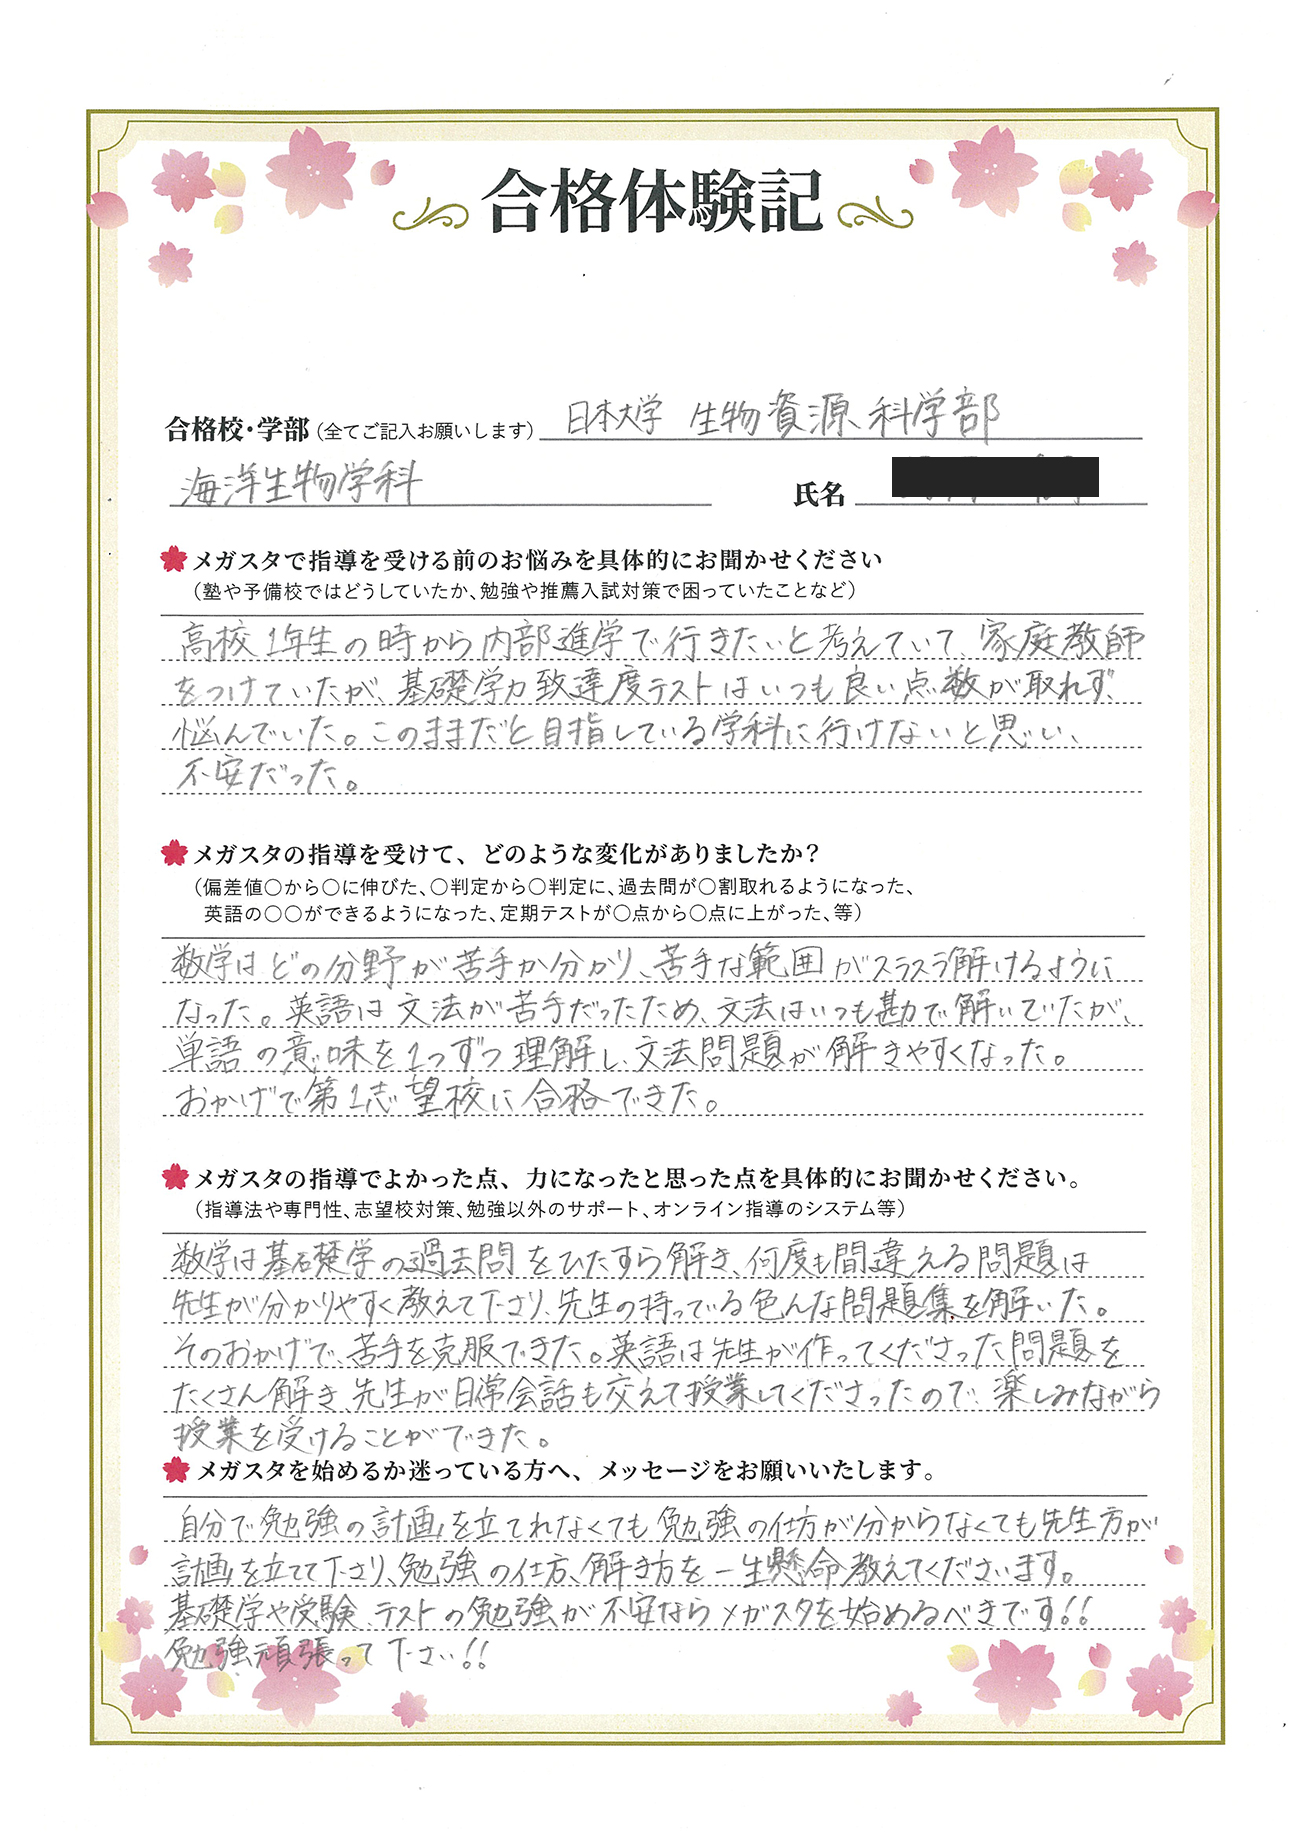 合格体験記
合格校・学部（全てご記入お願いします） 日本大学 生物資源科学部
海洋生物学科 氏名
メガスタで指導を受ける前のお悩みを具体的にお聞かせください
（塾や予備校ではどうしていたか、勉強や推薦入試対策で困っていたことなど）
高校1年生の時から内部進学で行きたいと考えていて、家庭教師
をつけていたが、基礎学力致達度テストはいつも良い点数が取れず、
悩んでいた。このままだと目指している学科に行けないと思い、
不安だった。
メガスタの指導を受けて、どのような変化がありましたか？
（偏差値〇から〇に伸びた、〇判定から〇判定に、過去問が〇割取れるようになった、
英語の〇〇ができるようになった、定期テストが〇点から〇点に上がった、等）
数学はどの分野が苦手か分かり、苦手な範囲がスラスラ解けるように
なった。英語は文法が苦手だったため、文法はいつも勘で解いていたが、
単語の意味を1つずつ理解し、文法問題が解きやすくなった。
おかげで第1志望校に合格できた。
メガスタの指導でよかった点、力になったと思った点を具体的にお聞かせください。
（指導法や専門性、志望校対策、勉強以外のサポート、オンライン指導のシステム等）
数学は基礎学の過去問をひたすら解き、何度も間違える問題は
先生が分かりやすく教えて下さり、先生の持っている色んな問題集を解いた。
そのおかげで、苦手を克服できた。英語は先生が作ってくださった問題を
たくさん解き、先生が日常会話も交えて授業してくださったので、楽しみながら
授業を受けることができた。
メガスタを始めるか迷っている方へ、メッセージをお願いいたします。
自分で勉強の計画を立てれなくても勉強の仕方が分からなくても先生方が
計画を立てて下さり、勉強の仕方、解き方を一生懸命教えてくださいます。
基礎学や受験、テストの勉強が不安ならメガスタを始めるべきです!!
勉強頑張って下さい!!